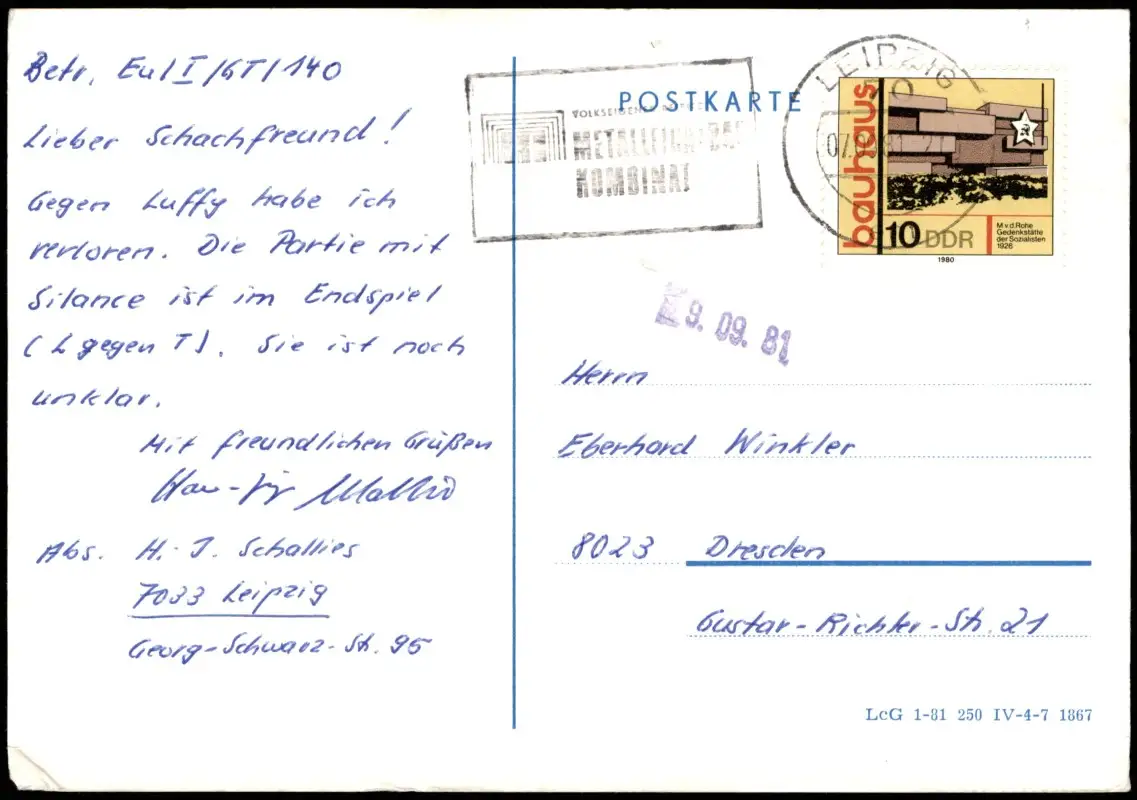 Betr. Eu/I/GT/140
Lieber Schachfreund!
Gegen Luffy habe ich
verloren. Die Partie mit
Silance ist im Endspiel
(L gegen T). Sie ist noch
unklar.
Mit freundlichen Grüßen
Abs. H.-J. Schallies
7033 Leipzig
Georg-Schwarz-Str. 95
POSTKARTE
VOLKSEIGENER
METALLEICHTBAU
KOMBINAT
LEIPZIG
bauhaus
10 DDR
M v.d. Rohe
Gedenkstätte
der Sozialisten
1926
1980
9. 09. 81
Herrn
Eberhard Winkler
8023 Dresden
Gustav-Richter-Str. 21
LcG 1-81 250 IV-4-7 1867